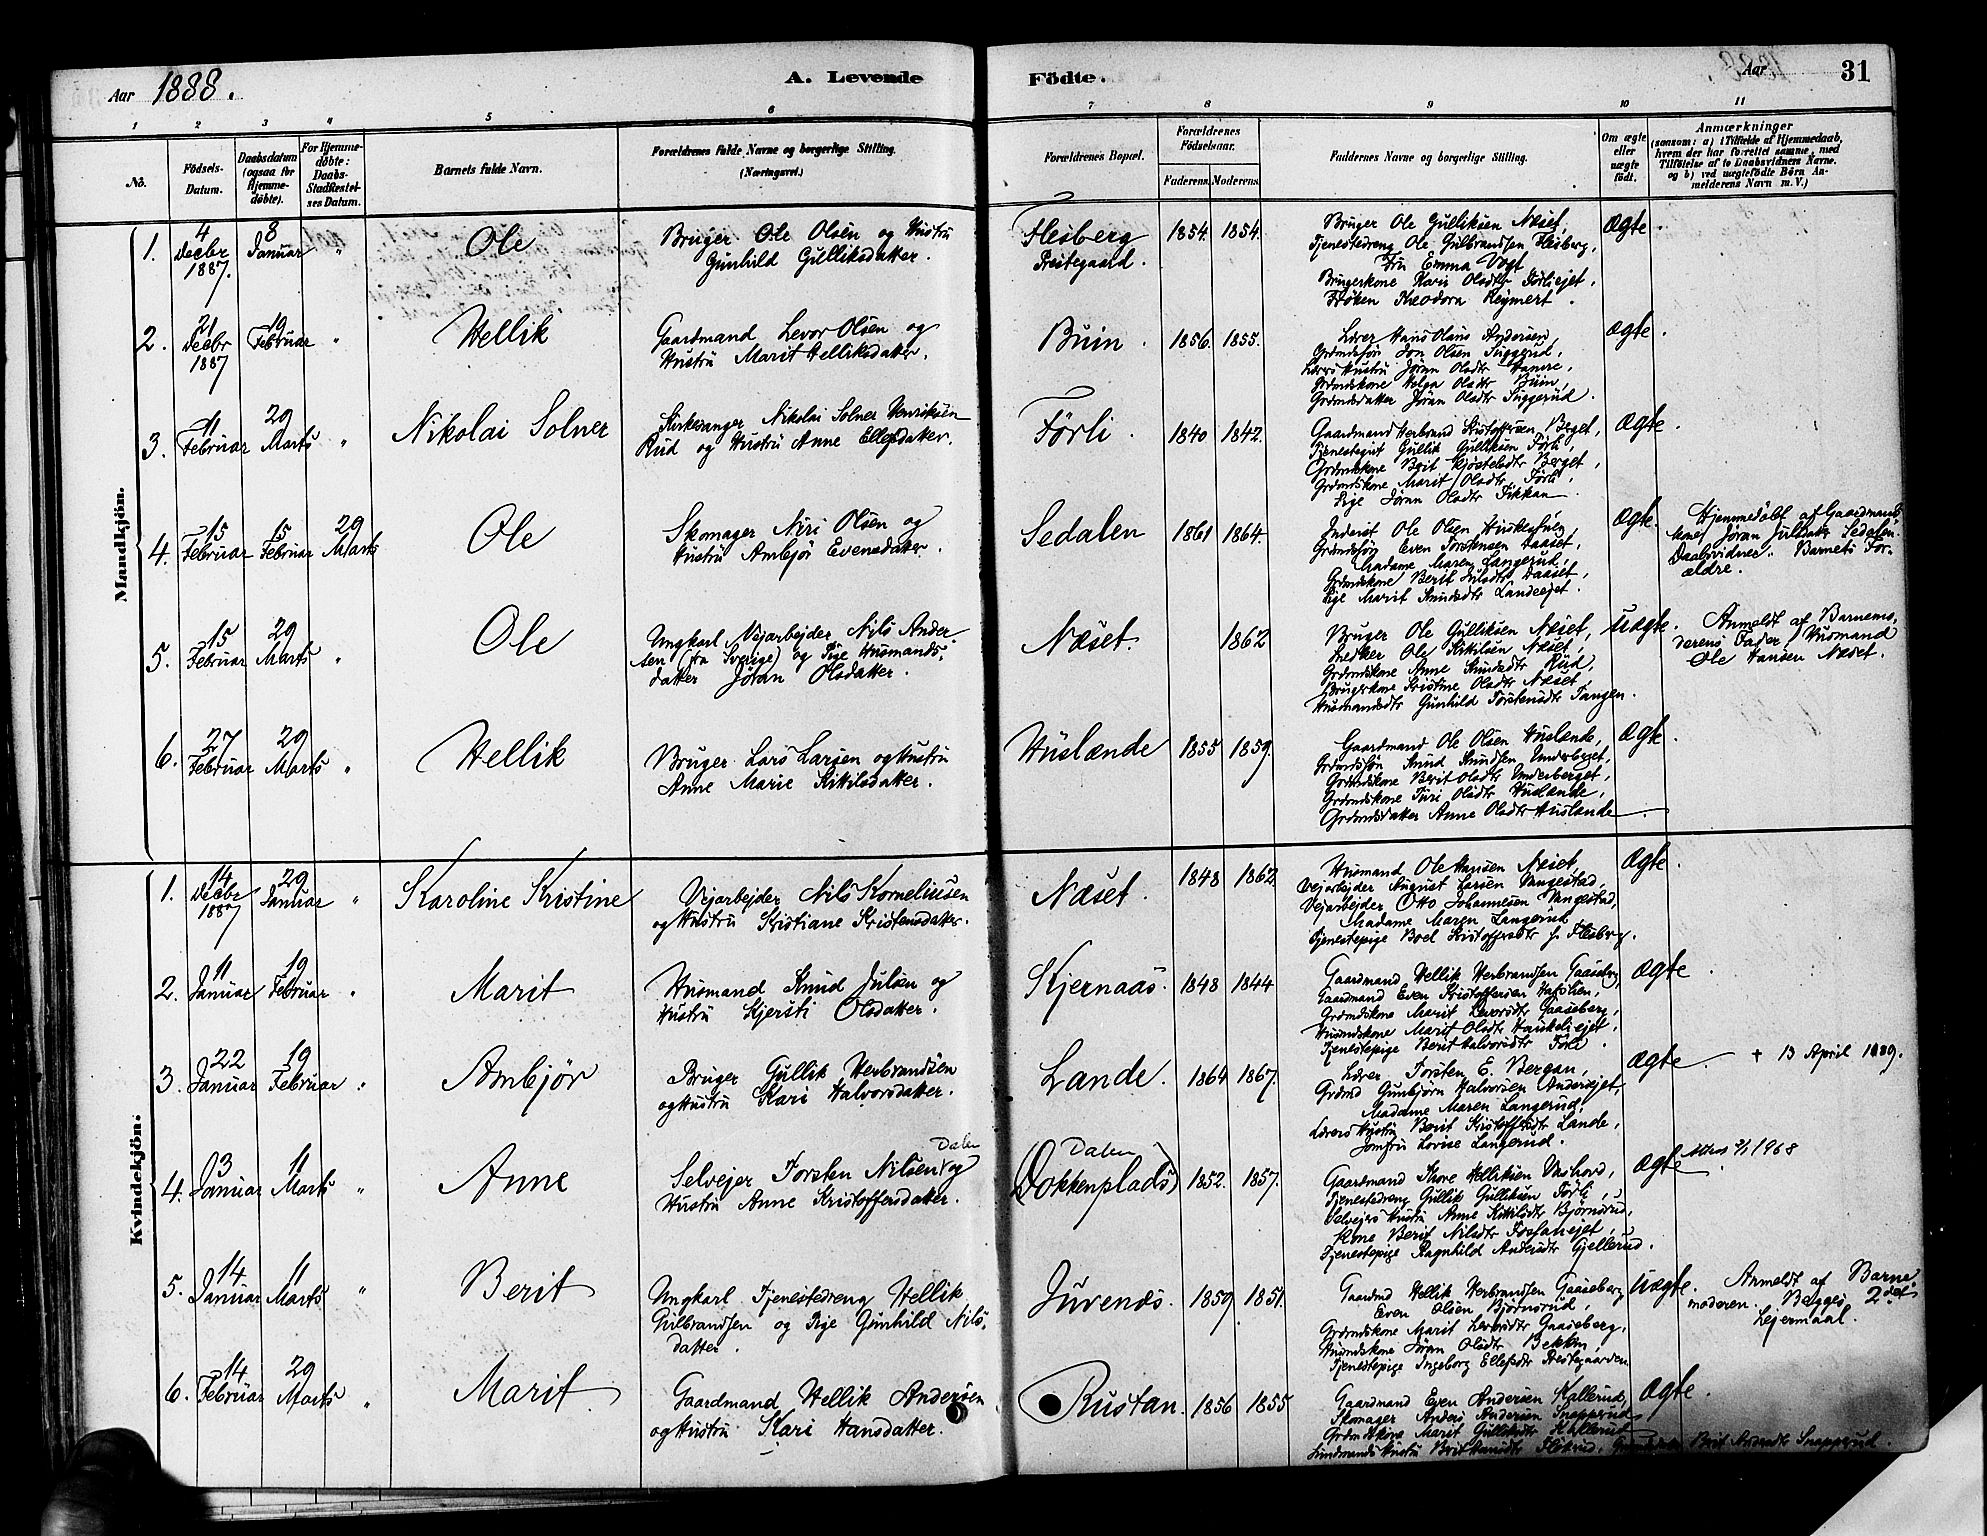 Aar 1888.
A. Levende
Födte.
Aar
31
1 2 3 4 5 6 7 8 9 10 11
No.
Födsels-
Datum.
Daabsdatum
(ogsaa for
Hjemme-
døbte).
For Hjemme-
døbte:
Daabs-
Stadfæstel-
ses Datum.
Barnets fulde Navn.
Forældrenes fulde Navne og borgerlige Stilling.
(Næringsvei.)
Forældrenes Bopæl.
Forældrenes
Födselsaar.
Faderens. Moderens.
Faddernes Navne og borgerlige Stilling.
Om ægte
eller
uægte
født.
Anmærkninger
(saasom: a) i Tilfælde af Hjemmedaab,
hvem der har forrettet samme, med
Tilföielse af to Daabsvidners Navne,
og b) ved uægtefødte Börn An-
melderens Navn m. V.)
Mandkjön.
1. 4 Decbr 1887. 8 Januar " Ole
Bruger Ole Olsen og Hustru
Gunhild Gulliksdatter.
Flesberg
Prestegaard.
1854. 1854.
Bruger Ole Gulliksen Næset,
Tjenestedreng Ole Gulbrandsen Flesberg,
Fru Emma Vogt
Brugerskone Kari Olsdtr Førliejet,
Frøken Theodora Reymert.
Ægte.
2. 21 Decbr 1887 19 Februar " Hellik
Gaardmand Levor Olsen og
Hustru Marit Helliksdatter.
Buin.
1856. 1855.
Lærer Hans Olaus Andersen,
Grdmdsøn Jon Olsen Suggerud,
Lærers Hustru Jøran Olsdtr Hamre,
Grdmdskone Helga Olsdtr Buin,
Grdmdsdatter Jøran Olsdtr Suggerud.
Ægte.
3. 11 Februar 29 Marts " Nikolai Solner
Kirkesanger Nikolai Solner Henriksen
Rud og Hustru Anne Ellefsdatter.
Førli.
1840 1842.
Gaardmand Herbrand Kristoffersen Berget,
Tjenestegut Gullik Gulliksen Førli,
Grdmdskone Berit Kjøstelsdtr Berget,
Grdmdskone Marit Olsdtr Førli,
Pige Jøran Olsdtr Fikkan.
Ægte.
4. 15 Februar 15 Februar 29 Marts Ole
Skomager Niri Olsen og
Hustru Ambjør Evensdatter.
Sedalen
1861 1864.
Inderst Ole Olsen
Grdmdsøn Even Torstensen Daaset,
Madame Maren Langerud,
Grdmdskone Berit Julsdtr Daaset,
Pige Marit Knudsdtr Landeejet.
Ægte.
Hjemmedøbt af Gaardmands-
kone Jøran Julsdatr Sedalen.
Daabsvidner: Barnets For-
ældre.
5. 15 Februar 29 Marts " Ole
Ungkarl Vejarbejder Nils Ander-
sen (fra Sverige) og Pige Husmands-
datter Jøran Olsdatter.
Næset.
1862
Bruger Ole Gulliksen Næset,
Snedker Ole Kittilsen Næset,
Grdmdskone Anne Knudsdtr Rud,
Brugerkone Kristine Olsdtr Næset,
Husmandsdtr Gunhild Torstensdtr Tangen.
Uægte.
Anmeldt af Barnemo-
derens Fader Husmand
Ole Hansen Næset.
6. 27 Februar 29 Marts " Hellik
Bruger Lars Larsen og Hustru
Anne Marie Kittilsdatter.
Huslænde
1855 1859.
Gaardmand Ole Olsen Huslænde,
Grdmdssøn Knud Knudsen Underberget,
Grdmdskone Berit Olsdtr Underberget,
Grdmdskone Turi Olsdtr Huslænde,
Grdmdsdatter Anne Olsdtr Huslænde
Ægte.
Kvindekjön.
1. 14 Decbr 1887 29 Januar " Karoline Kristine
Vejarbejder Nils Korneliussen
og Hustru Kristiane Kristensdatter.
Næset.
1848 1862
Husmand Ole Hansen Næset,
Vejarbejder August Larsen Vangestad,
Vejarbejder Otto Johannesen Vangestad,
Madame Maren Langerud
Tjenestepige Boel Kristoffersdtr f. Flesberg.
Ægte.
2. 11 Januar 19 Februar " Marit
Husmand Knud Julsen og
Hustru Kjersti Olsdatter.
Skjernaas.
1848 1844
Gaardmand Hellik Herbrandsen Gaaseberg,
Gaardmand Even Kristoffersen
Grdmdskone Marit Leversdtr Gaaseberg,
Husmdskone Marit Olsdtr
Tjenestepige Berit Halvorsdtr Førli.
Ægte.
3. 22 Januar 19 Februar " Ambjør
Bruger Gullik Herbrandsen
og Hustru Kari Halvorsdatter.
Lande.
1864 1867.
Lærer Torsten E. Bergan,
Grdmd Gunbjørn Halvorsen Andersejet,
Madame Maren Langerud,
Lærers Hustru Berit Kristoffersdtr Lande,
Jomfru Lovise Langerud.
Ægte.
+ 13 April 1889.
4. 03 Januar 11 Marts " Anne
Dalen
Selvejer Torsten Nilsen og
Hustru Anne Kristoffersdatter.
Dalen
(Dokkenplads)
1852. 1857.
Gaardmand Tore Helliksen
Tjenestedreng Gullik Gulliksen Førli,
Selvejers Hustru Anne Kittilsdtr Bjørnsrud,
Kone Berit Nilsdtr
Tjenestepige Ragnhild Andersdtr Gjellerud.
Ægte
1968
5. 14 Januar 11 Marts " Berit
Ungkarl Tjenestedreng Hellik
Gulbrandsen og Pige Gunhild Nils-
datter.
Juvenes.
1859. 1851.
Gaardmd Hellik Herbrandsen Gaaseberg
Even Olsen Bjørnsrud,
Grdmdskone Marit Leversdtr Gaaseberg,
Husmdskone Jøran Olsdtr Bekken,
Tjenestepige Ingeborg Ellefsdtr Prestegaarden
Uægte.
Anmeldt af Barne-
moderen. Begges 2det
Lejermaal.
6. 14 Februar 29 Marts " Marit
Gaardmand Hellik Andersen
og Hustru Kari Hansdatter.
Rustan.
1856 1855
Gaardmand Even Andersen Kallerud,
Skomager Anders Andersen Snapperud
Grdmdskone Marit Gulliksdtr Kallerud
Hustru Brit Hansdtr Flisrud, Brit Andersdtr Snapperud.
Ægte.